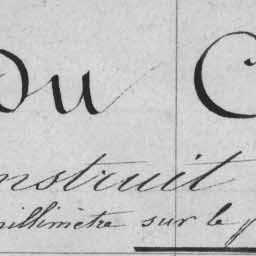 du C
nstruit
millimètre sur le p